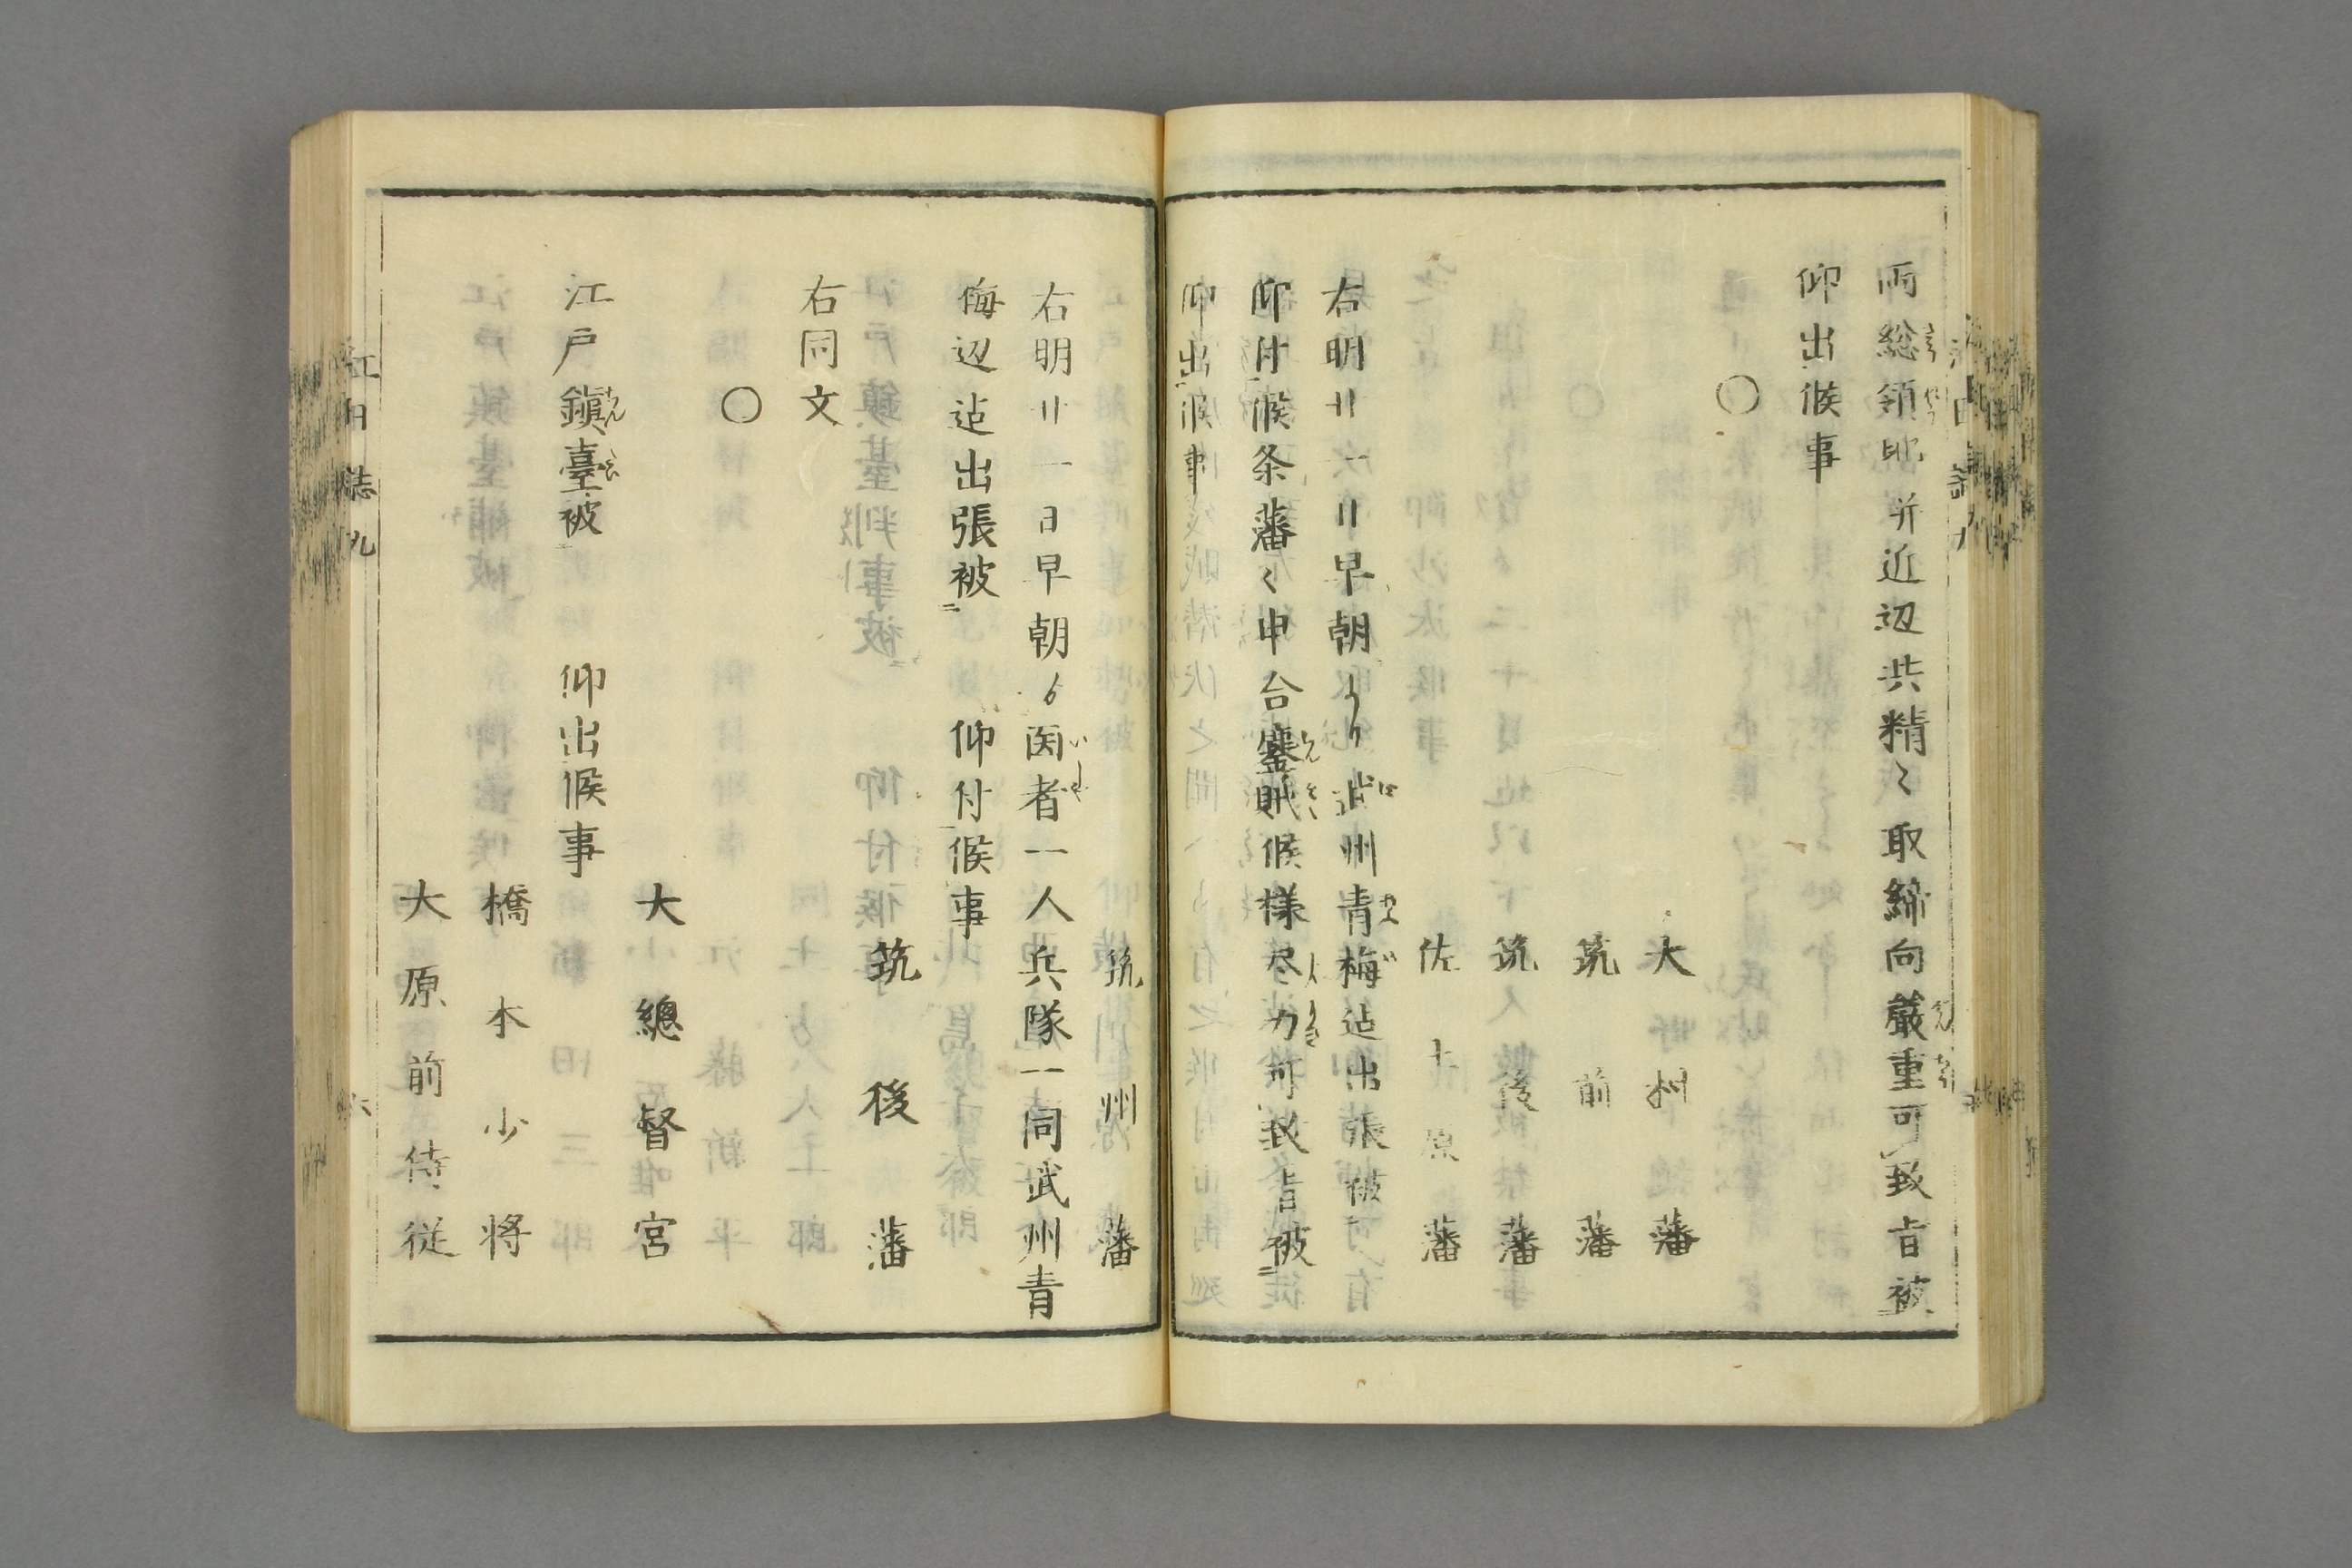 両総領地并近辺共精〻取締向厳重可致旨被
仰出候事
〇
大州藩
筑前藩
筑後藩
佐土原藩
右明廿一日早朝より武州青梅迠出張被
仰付候条藩〻申合鏖賊候様尽力可致旨被
仰出候事
筑州藩
右明廿一日早朝ゟ医者一人兵隊一同武州青
侮辺迠出張被　仰付候事
筑後藩
右同文
〇
大總督宮
江戸鎮臺被　仰出候事
橋本少将
大原前侍従
江日誌九
六